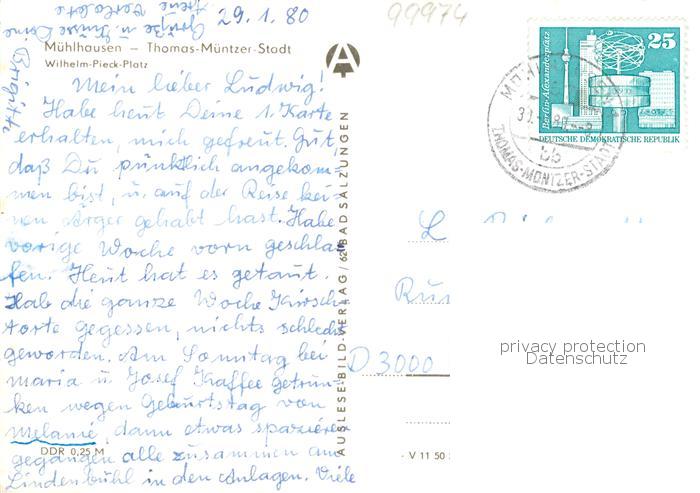 29.1.80
99974
Mühlhausen – Thomas-Müntzer-Stadt
Wilhelm-Pieck-Platz
Mein lieber Ludwig!
Habe heut Deine 1. Karte
erhalten, mich gefreut. Gut,
daß Du pünktlich angekom-
men bist, u. auf der Reise kei-
nen Ärger gehabt hast. Habe
vorige Woche vorn geschla-
fen. Heut hat es getaut.
Hab die ganze Woche Kirsch
torte gegessen, nichts schlecht
geworden. Am Sonntag bei
maria u. Josef Kaffee getrun-
ken wegen Geburtstag von
Melanie, dann etwas spazieren
gegangen alle zusammen am
Lindenbühl in den Anlagen. Viele
Grüße u. Küsse Deine
Brigitte
DDR 0,25 M
AUSLESE-BILD-VERLAG / 62 BAD SALZUNGEN
25
Berlin-Alexanderplatz
DEUTSCHE DEMOKRATISCHE REPUBLIK
THOMAS-MÜNTZER-STADT
L
Run
D 3000
V 11 50
privacy protection
Datenschutz